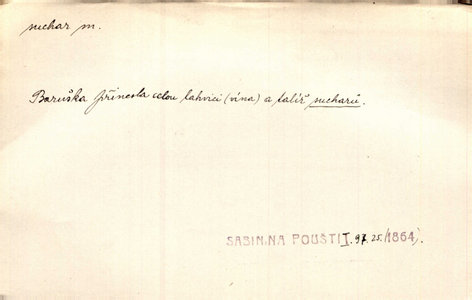 suchar m.
Baruška přinesla celou lahvici (vína) a talíř sucharů.
SABIN,NA POUŠTI I. 97. 25. (1864).